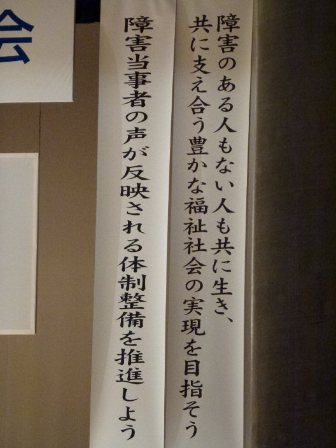 障害のある人もない人も共に生き、
共に支え合う豊かな福祉社会の実現を目指そう
障害当事者の声が反映される体制整備を推進しよう
会